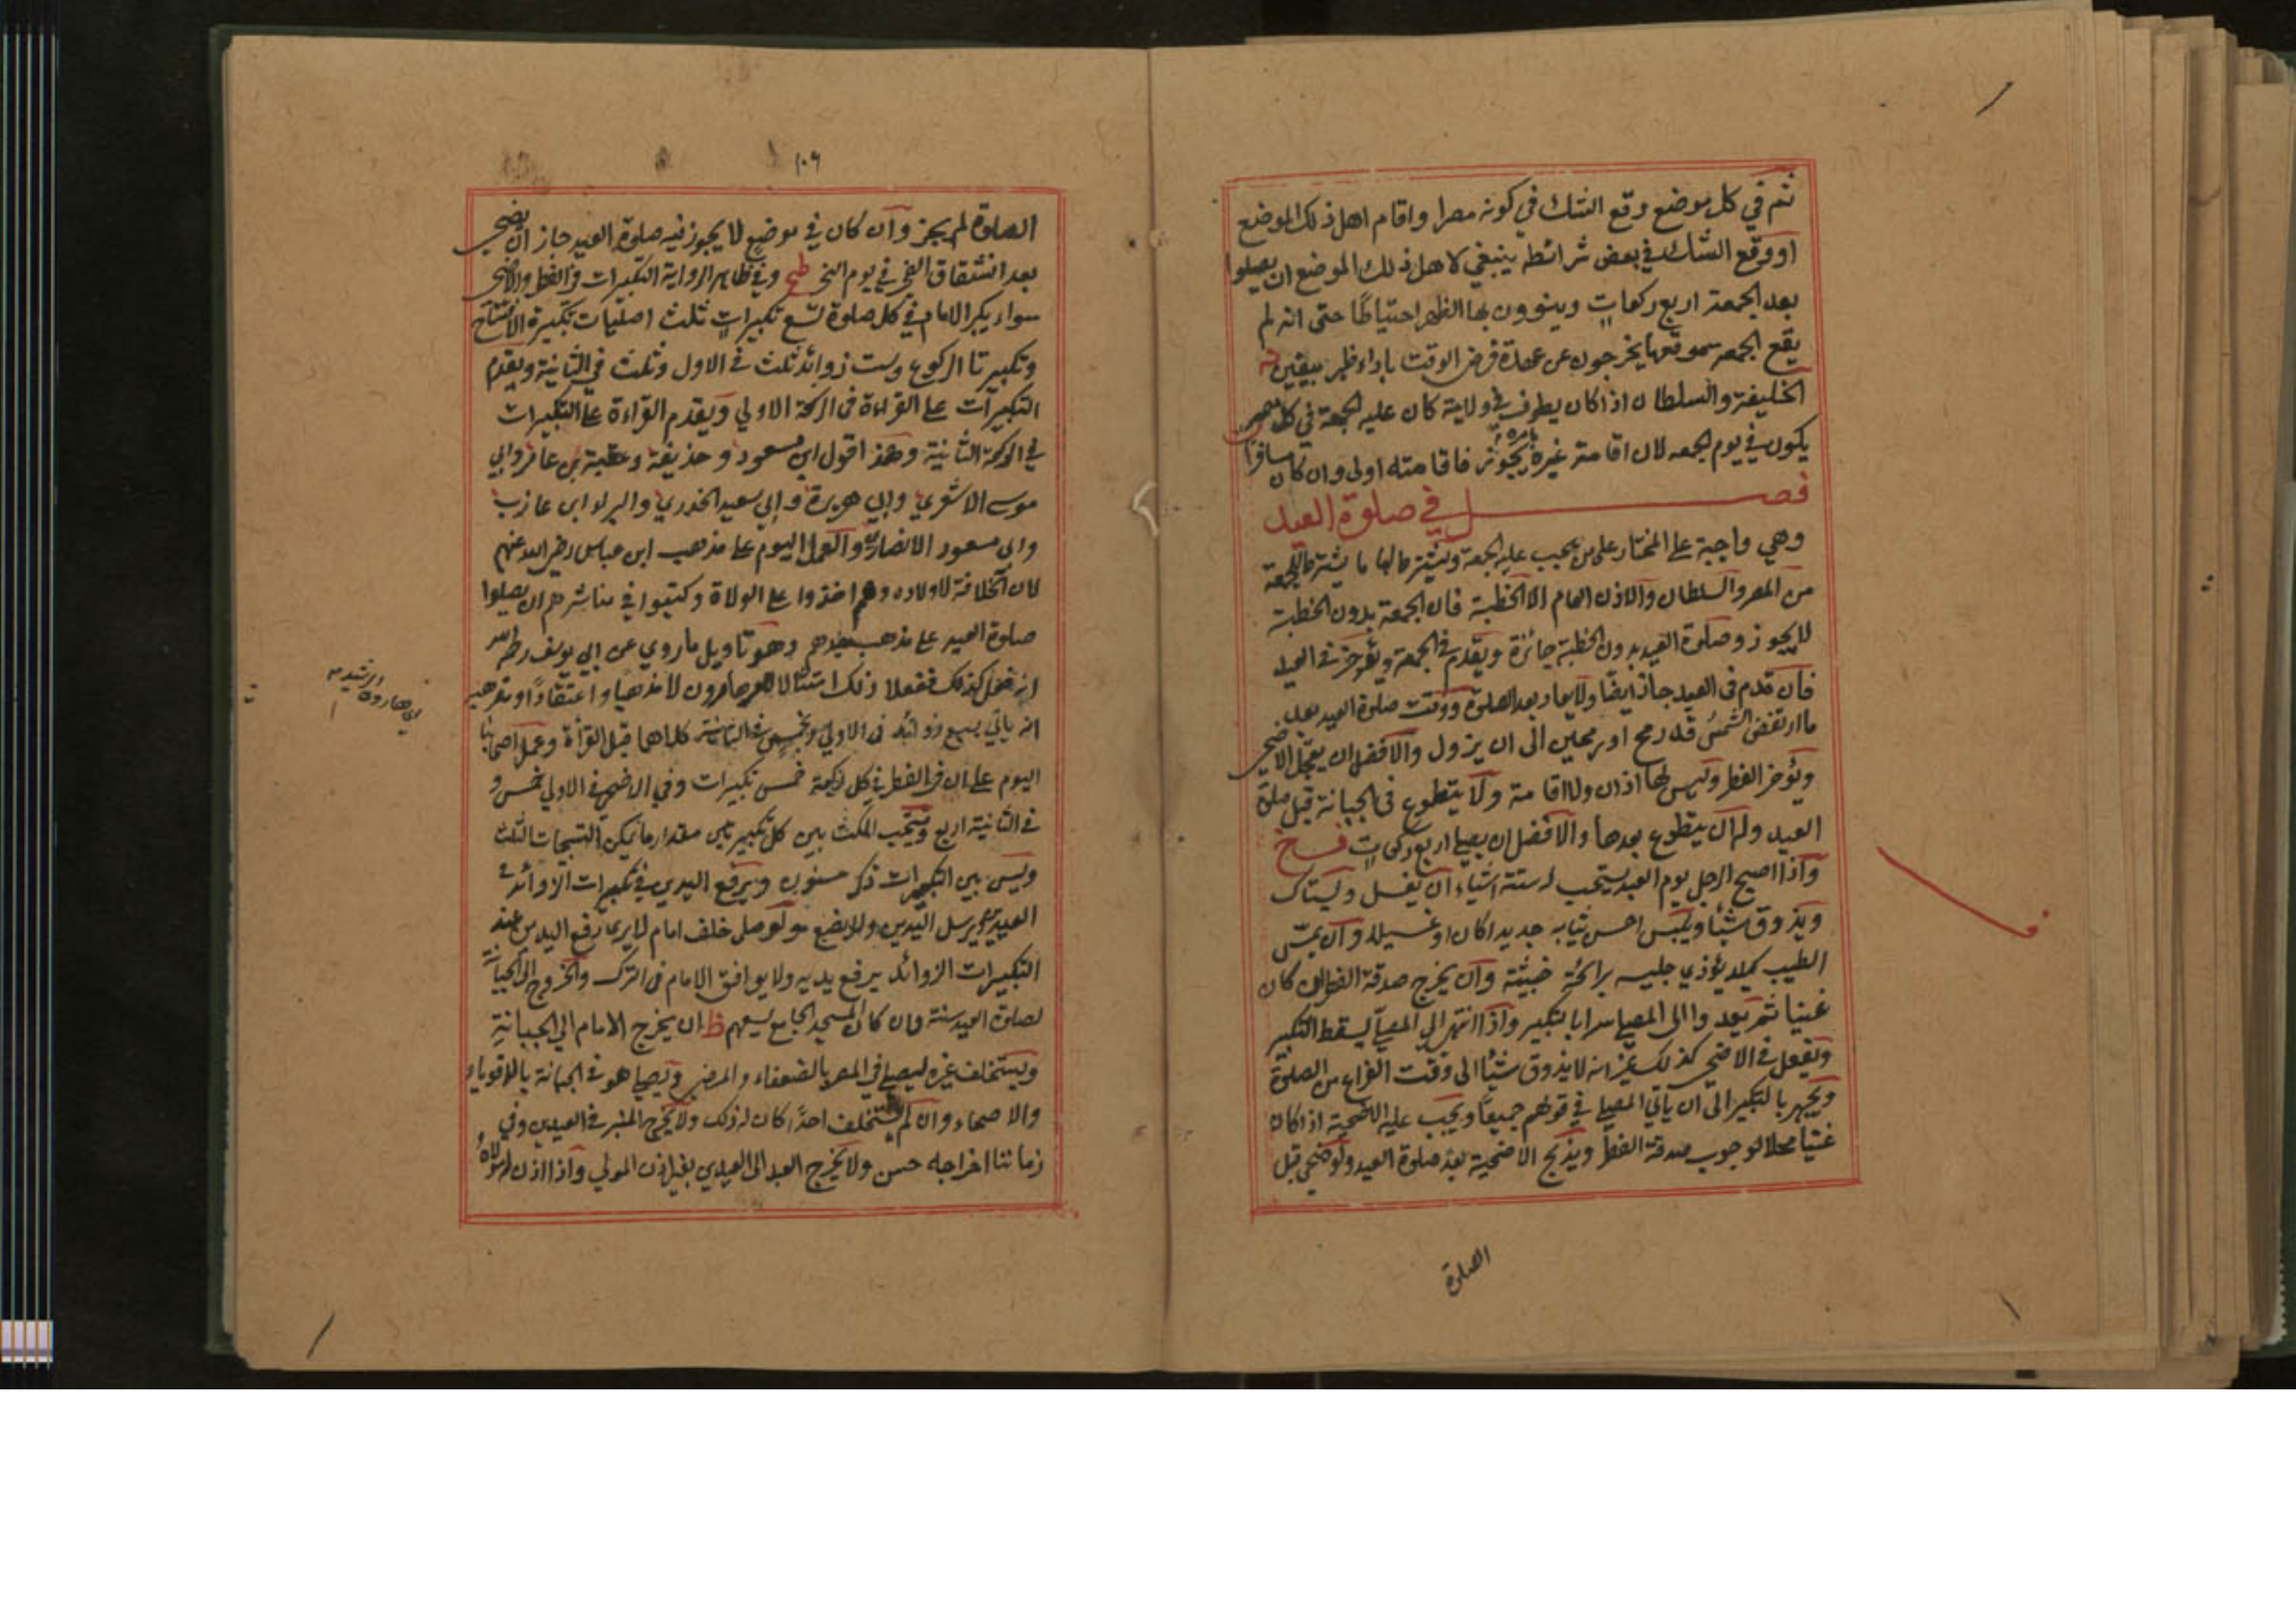 ثم في كل موضع وقع الشك في كونه مصرا واقام اهل ذلك الموضع
او وقع الشك في بعض شرائطه ينبغي لاهل ذلك الموضع ان يصلوا
بعد الجمعة اربع ركعات وينوون بها الظهر احتياطا حتى انه لم
يقع الجمعه موقعها يخرجون عن عهدة فرض الوقت باداء ظهر بيقين
الخليفة والسلطان اذا كان يطوف في ولايته كان عليه الجمعة في كل مصر
يكون في يوم الجمعه لان اقامة غيره بامره يجوز فاقامته اولى وان كان مسافرا
فصل في صلوة العيد
وهي واجبة على المختار على من يجب عليه الجمعة ويشترط لها ما يشترط للجمعة
من المصر والسلطان والاذن العام الا الخطبة فان الجمعة بدون الخطبة
لا يجوز وصلوة العيد بدون الخطبة جائزة ويقدم في الجمعة ويؤخر في العيد
فان قدم في العيد جاز ايضا ولا يعاد بعد الصلوة ووقت صلوة العيد بعد
ما ارتفعت الشمس قدر رمح او رمحين الى ان يزول والافضل ان يعجل الاضحى
ويؤخر الفطر وليس لها اذان ولا اقامة ولا يتطوع في الجبانة قبل صلوة
العيد وله ان يتطوع بعدها والافضل ان يصلي اربع ركعات
واذا اصبح الرجل يوم العيد يستحب له ستة اشياء ان يغسل ويستاك
ويذوق شيئا ويلبس احسن ثيابه جديدا كان او غسيلا وان يمس
الطيب كيلا يؤذي جليسه برائحة خبيثة وان يخرج صدقة الفطر ان كان
غنيا ثم يعدوا الى المصلى سرا بالتكبير واذا انتهى الى المصلى يسقط التكبير
وتفعل في الاضحى كذلك غير انه لا يذوق شيئا الى وقت الفراغ من الصلوة
ويجهر بالتكبير الى ان ياتي المصلى في قولهم جميعا ويجب عليه الاضحية اذا كان
غنيا محلا لوجوب صدقة الفطر ويذبح الاضحية بعد صلوة العيد ولو ضحى قبل
الصلوة
١٠٦
الصلوة لم يجز وان كان في موضع لا يجوز فيه صلوة العيد جاز ان يضحي
بعد انشقاق الفجر في يوم النحر وفي ظاهر الرواية التكبيرات في الفطر والاضحى
سواء يكبر الامام في كل صلوة تسع تكبيرات ثلث اصليات تكبيرة الافتتاح
وتكبيرتا الركوع وست زوائد ثلث في الاول وثلث في الثانية ويقدم
التكبيرات على القراءة في الركعة الاولى ويقدم القراءة على التكبيرات
في الركعة الثانية وهذا قول ابن مسعود وحذيفة وعقبة بن عامر وابي
موسى الاشعري وابي هريرة وابي سعيد الخدري والبراء ابن عازب
وابي مسعود الانصاري والعمل اليوم على مذهب ابن عباس رضي الله عنهم
لان الخلافة لاولاده وهم اخذوا على الولاة وكتبوا في مناشرهم ان يصلوا
صلوة العيد على مذهب جدهم وهو تاويل ما روي عن ابي يوسف رحمه الله
انه فعل كذلك ففعلا ذلك امتثالا لامر هارون لا مذهبا واعتقادا ومذهبه
اي هارون الرشيد
انه ياتي بسبع زوائد في الاولى وبخمس في الثانية كلاهما قبل القرأة وعمل اصحابنا
اليوم على ان في الفطر في كل ركعة خمس تكبيرات وفي الاضحى في الاولى خمس و
في الثانية اربع ويستحب المكث بين كل تكبيرتين مقدار ما يمكن التسبيحات الثلث
وليس بين التكبيرات ذكر مسنون ويرفع اليدين في تكبيرات الزوائد في
العيدين ويرسل اليدين ولا يضع ولو صلى خلف امام لا يرى رفع اليدين عند
التكبيرات الزوائد يرفع يديه ولا يوافق الامام في الترك والخروج الى الجبانة
لصلوة العيد سنة وان كان المسجد الجامع يسعهم ان يخرج الامام الى الجبانة
ويستخلف غيره ليصلي في المصر بالضعفاء والمرضى ويصلي هو في الجبانة بالاقوياء
والاصحاء وان لم يستخلف احدا كان له ذلك ولا يخرج المنبر في العيدين وفي
زماننا اخراجه حسن ولا يخرج العبد الى العيدين بغير اذن المولى واذا اذن له مولاه